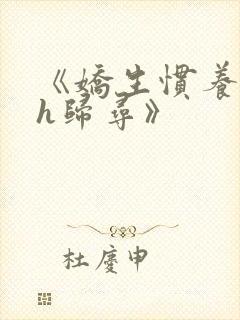 《嬌生慣養
h歸尋》
杜慶申